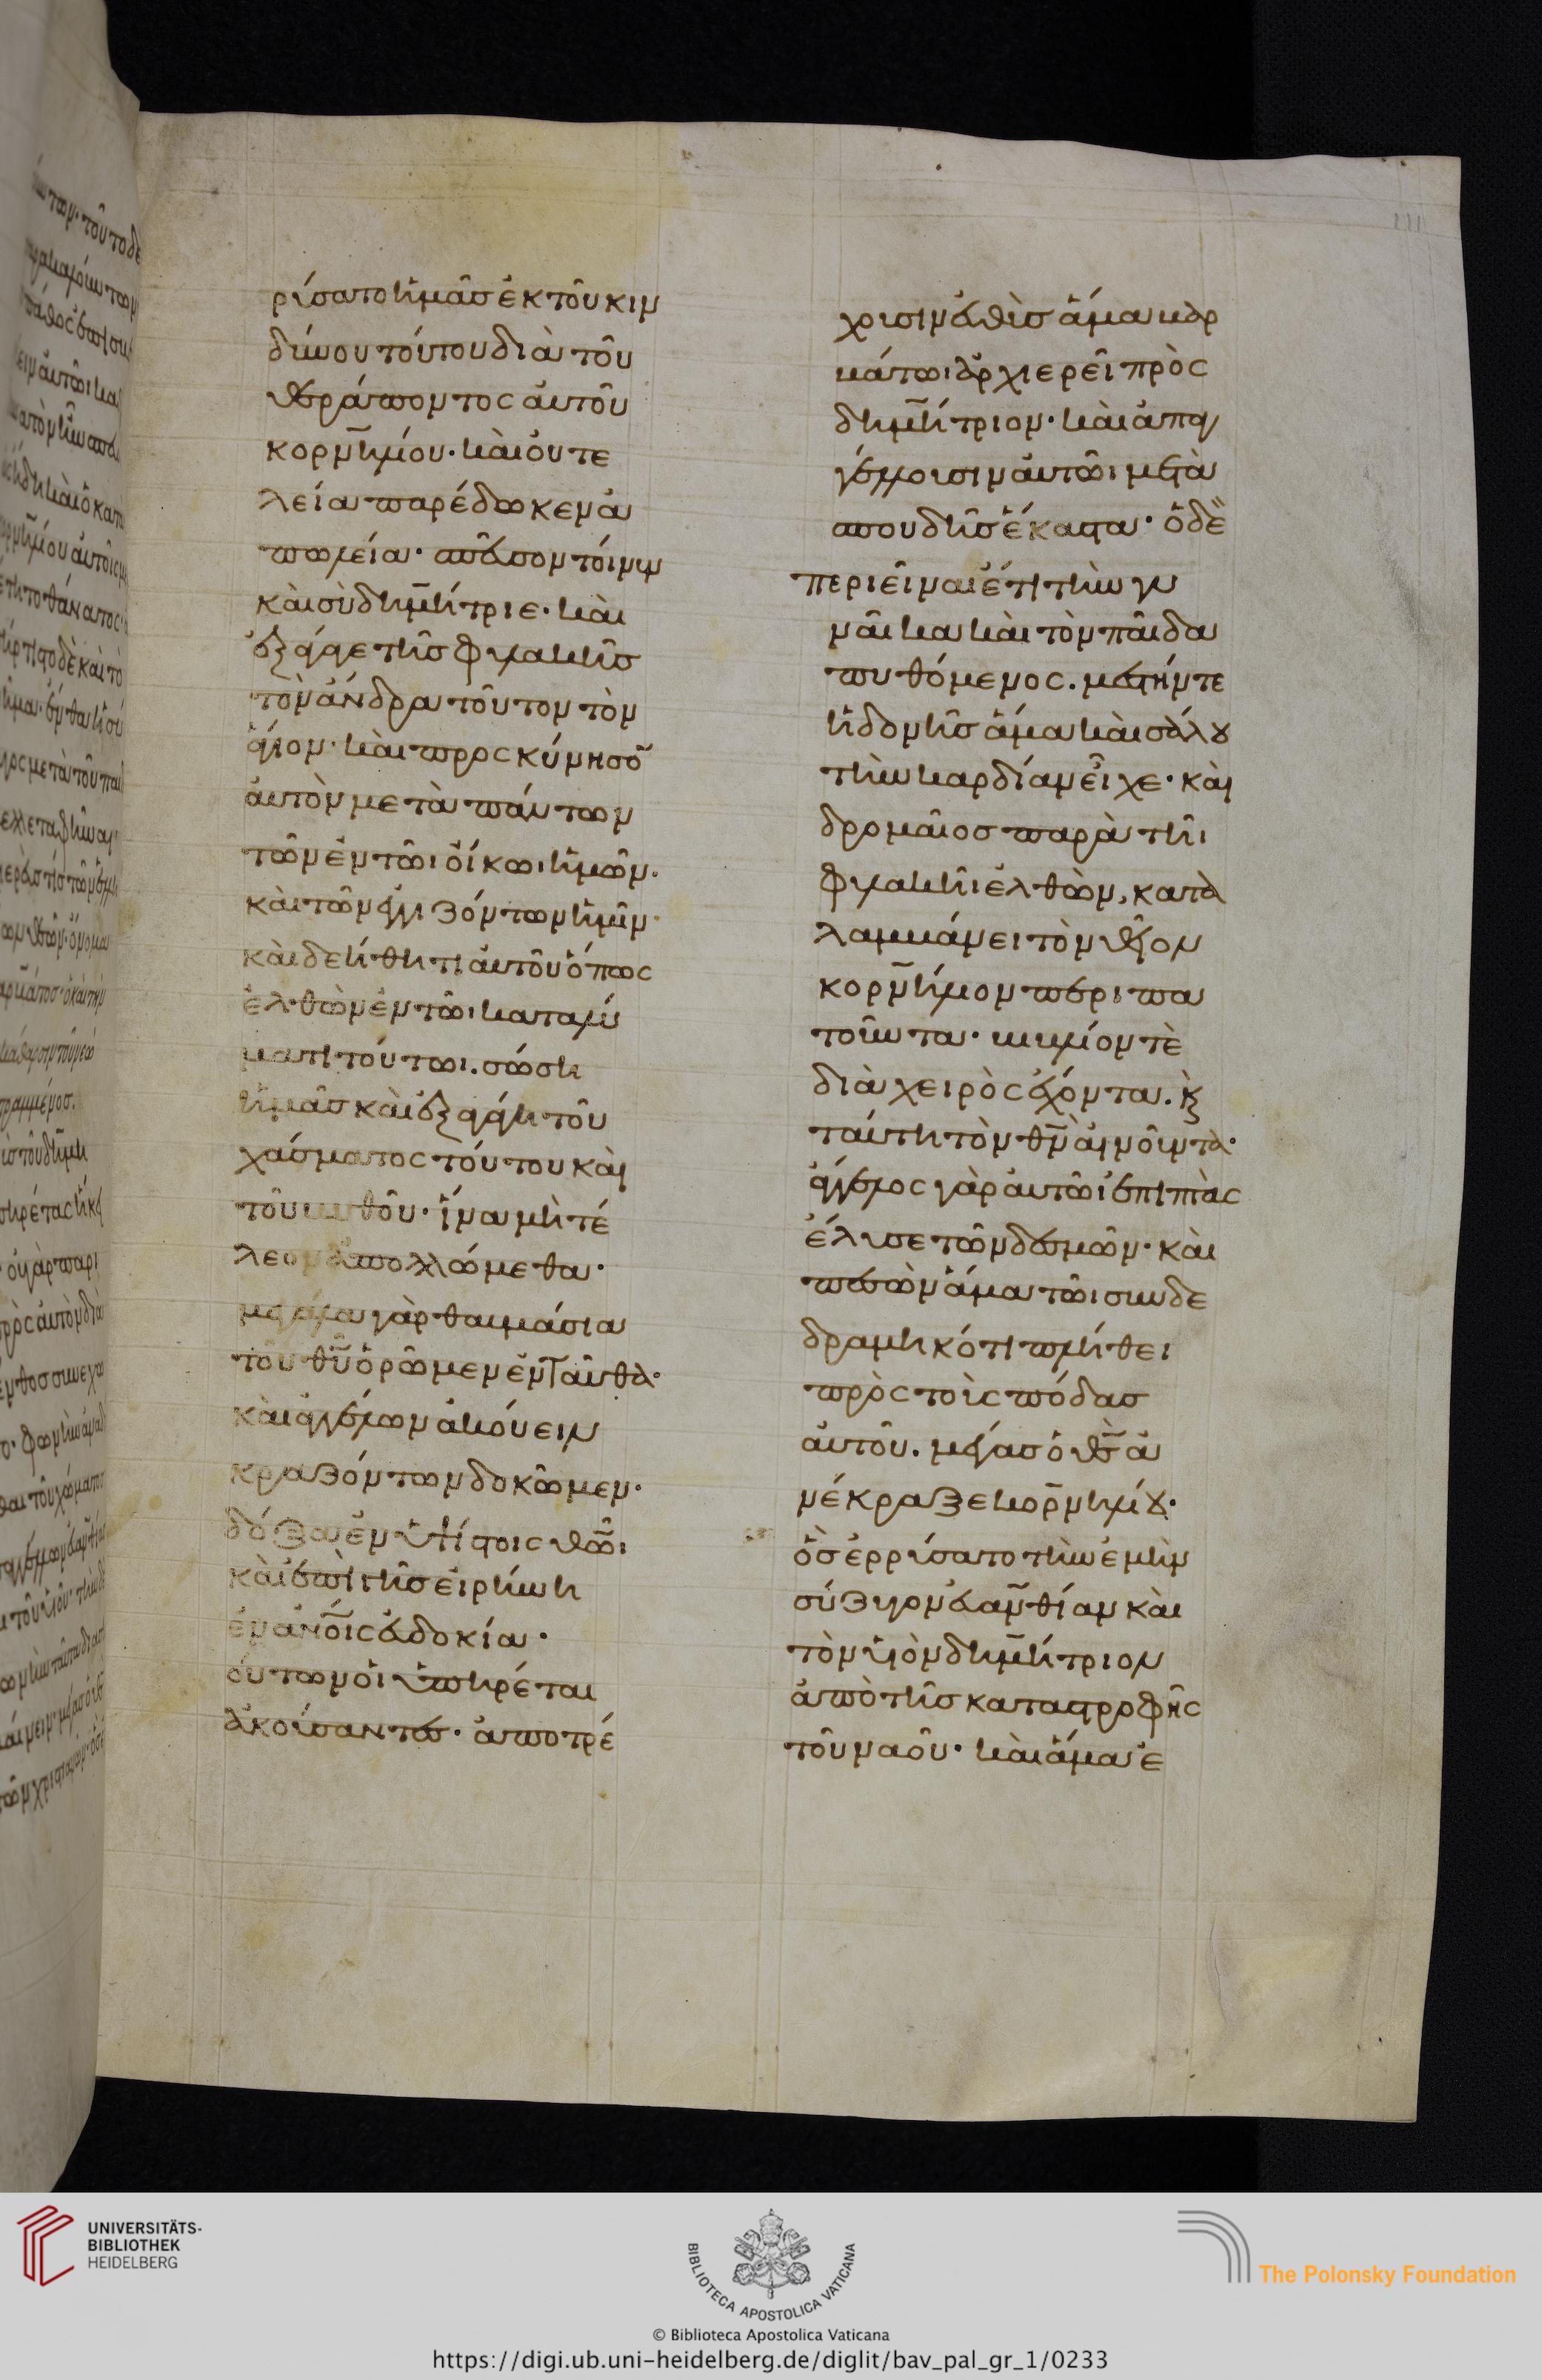 ρύσατο ἡμᾶσ ἐκ τοῦ κιν
δύνου τούτου διὰ τοῦ
θεράποντος αὐτοῦ
κορνηλίου· καὶ οὐ τε
λεία παρέδωκεν ἀ
πωλεία· σπεῦσον τοίνυν
καὶ σὺ δημήτριε· καὶ
ἐξάγαγε τῆσ φυλακῆσ
τὸν ἄνδρα τοῦτον τὸν
ἅγιον· καὶ προσκύνησον
αὐτὸν μετὰ πάντων
τῶν ἐν τῶι οἴκωι ἡμῶν·
καὶ τῶν ἐγγιζόντων ἡμῖν·
καὶ δεήθητι αὐτοῦ ὅπως
ἐλθὼν ἐν τῶι καταλύ
ματι τούτωι. σώση
ἡμᾶσ καὶ ἐξαγάγη τοῦ
χάσματος τούτου καὶ
τοῦ βυθοῦ· ἵνα μὴ τέ
λεον ἀπολλώμεθα·
μεγάλα γὰρ θαυμάσια
τοῦ θυ ὁρῶμεν ἐνταῦθα·
καὶ ἀγγέλων ἀκούειν
κραζόντων δοκῶμεν·
δόξα ἐν ὑψίστοις θεῶι
καὶ ἐπὶ τῆσ εἰρήνη
ἐν ἀνοις εὐδοκία·
οὕτων οἱ ὑπηρέται
ἀκούσαντες· ἀποτρέ
χουσιν εὐθὺσ ἅμα βαρ
βάτωι ἀρχιερεῖ πρὸς
δημήτριον· καὶ ἀπαγ
γέλλουσιν αὐτῶι μετὰ
σπουδῆσ ἕκαστα· ὁ δὲ
περιεῖναι ἔτι τὴν γυ
ναῖκα καὶ τὸν παῖδα
πυθόμενος. μεστήν τε
ἡδονῆσ ἅμα καὶ σάλου
τὴν καρδίαν εἶχε· καὶ
δρομαῖοσ παρὰ τῆι
φυλακῆι ἐλθὼν, κατα
λαμβάνει τὸν θεῖον
κορνήλιον περιπα
τοῦντα· βιβλίον τὲ
διὰ χειρὸς ἔχοντα. κ
ταύτη τὸν θν αἰνοῦντα·
ἄγγελος γὰρ αὐτῶ ἐπιστὰς
ἔλυσε τῶν δεσμῶν· καὶ
πεσὼν ἅμα τῶι συνδε
δραμηκότι πλήθει
πρὸς τοὺς πόδασ
αὐτοῦ. μέγασ ὁ θσ ἀ
νέκραξε κορνηλίου·
ὃσ ἐρρύσατο τὴν ἐμὴν
σύζυγον εὐανθίαν καὶ
τὸν υἱὸν δημήτριον
ἀπὸ τῆσ καταστροφῆς
τοῦ ναοῦ· καὶ ἅμα ἐ
UNIVERSITÄTS-
BIBLIOTHEK
HEIDELBERG
BIBLIOTECA APOSTOLICA VATICANA
The Polonsky Foundation
© Biblioteca Apostolica Vaticana
https://digi.ub.uni-heidelberg.de/diglit/bav_pal_gr_1/0233